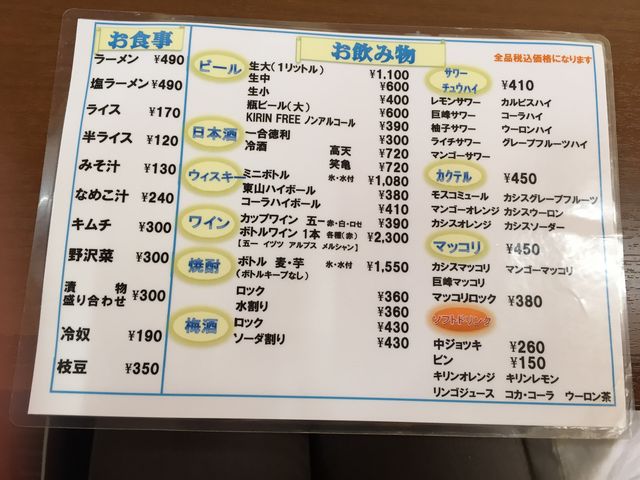 お食事
ラーメン ¥490
塩ラーメン ¥490
ライス ¥170
半ライス ¥120
みそ汁 ¥130
なめこ汁 ¥240
キムチ ¥300
野沢菜 ¥300
漬物
盛り合わせ ¥300
冷奴 ¥190
枝豆 ¥350
お飲み物
全品税込価格になります
ビール
生大(1リットル) ¥1,100
生中 ¥600
生小 ¥400
瓶ビール(大) ¥600
KIRIN FREE ノンアルコール ¥390
日本酒
一合徳利 ¥300
冷酒 高天 ¥720
笑亀 ¥720
ウィスキー
ミニボトル 氷・水付 ¥1,080
東山ハイボール ¥380
コーラハイボール ¥410
ワイン
カップワイン 五一 赤・白・ロゼ ¥390
ボトルワイン 1本 各種(赤) ¥2,300
【五一 イヅツ アルプス メルシャン】
焼酎
ボトル 麦・芋 氷・水付 ¥1,550
(ボトルキープなし)
ロック ¥360
水割り ¥360
梅酒
ロック ¥430
ソーダ割り ¥430
サワー
チュウハイ ¥410
レモンサワー カルピスハイ
巨峰サワー コーラハイ
柚子サワー ウーロンハイ
ライチサワー グレープフルーツハイ
マンゴーサワー
カクテル ¥450
モスコミュール カシスグレープフルーツ
マンゴーオレンジ カシスウーロン
カシスオレンジ カシスソーダー
マッコリ ¥450
カシスマッコリ マンゴーマッコリ
巨峰マッコリ
マッコリロック ¥380
ソフトドリンク
中ジョッキ ¥260
ビン ¥150
キリンオレンジ キリンレモン
リンゴジュース コカ・コーラ ウーロン茶